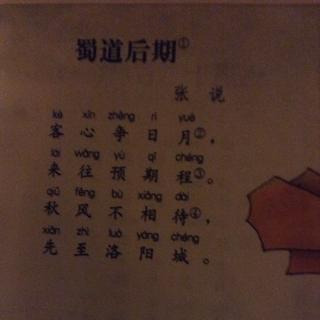 蜀道后期①
张 说
kè xīn zhēng rì yuè
客心争日月②，
lái wǎng yù qī chéng
来往预期程③。
qiū fēng bù xiāng dài
秋风不相待④，
xiān zhì luò yáng chéng
先至洛阳城。